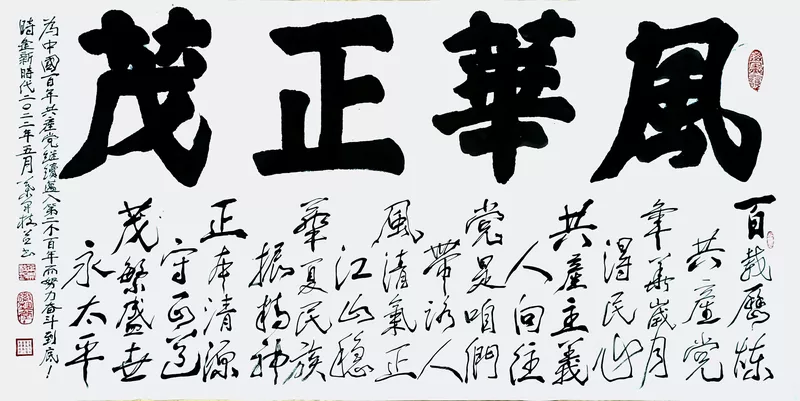 風華正茂
百載歷煉
共產党
年華歲月
得民心
共產主義
人向往
党是咱們
帶路人
風清氣正
江山穩
華夏民族
振精神
正本清源
守正道
茂繁盛世
永太平
為中國百年共產党继續邁入第二个百年而努力奋斗到底！
新時代二〇二二年五月